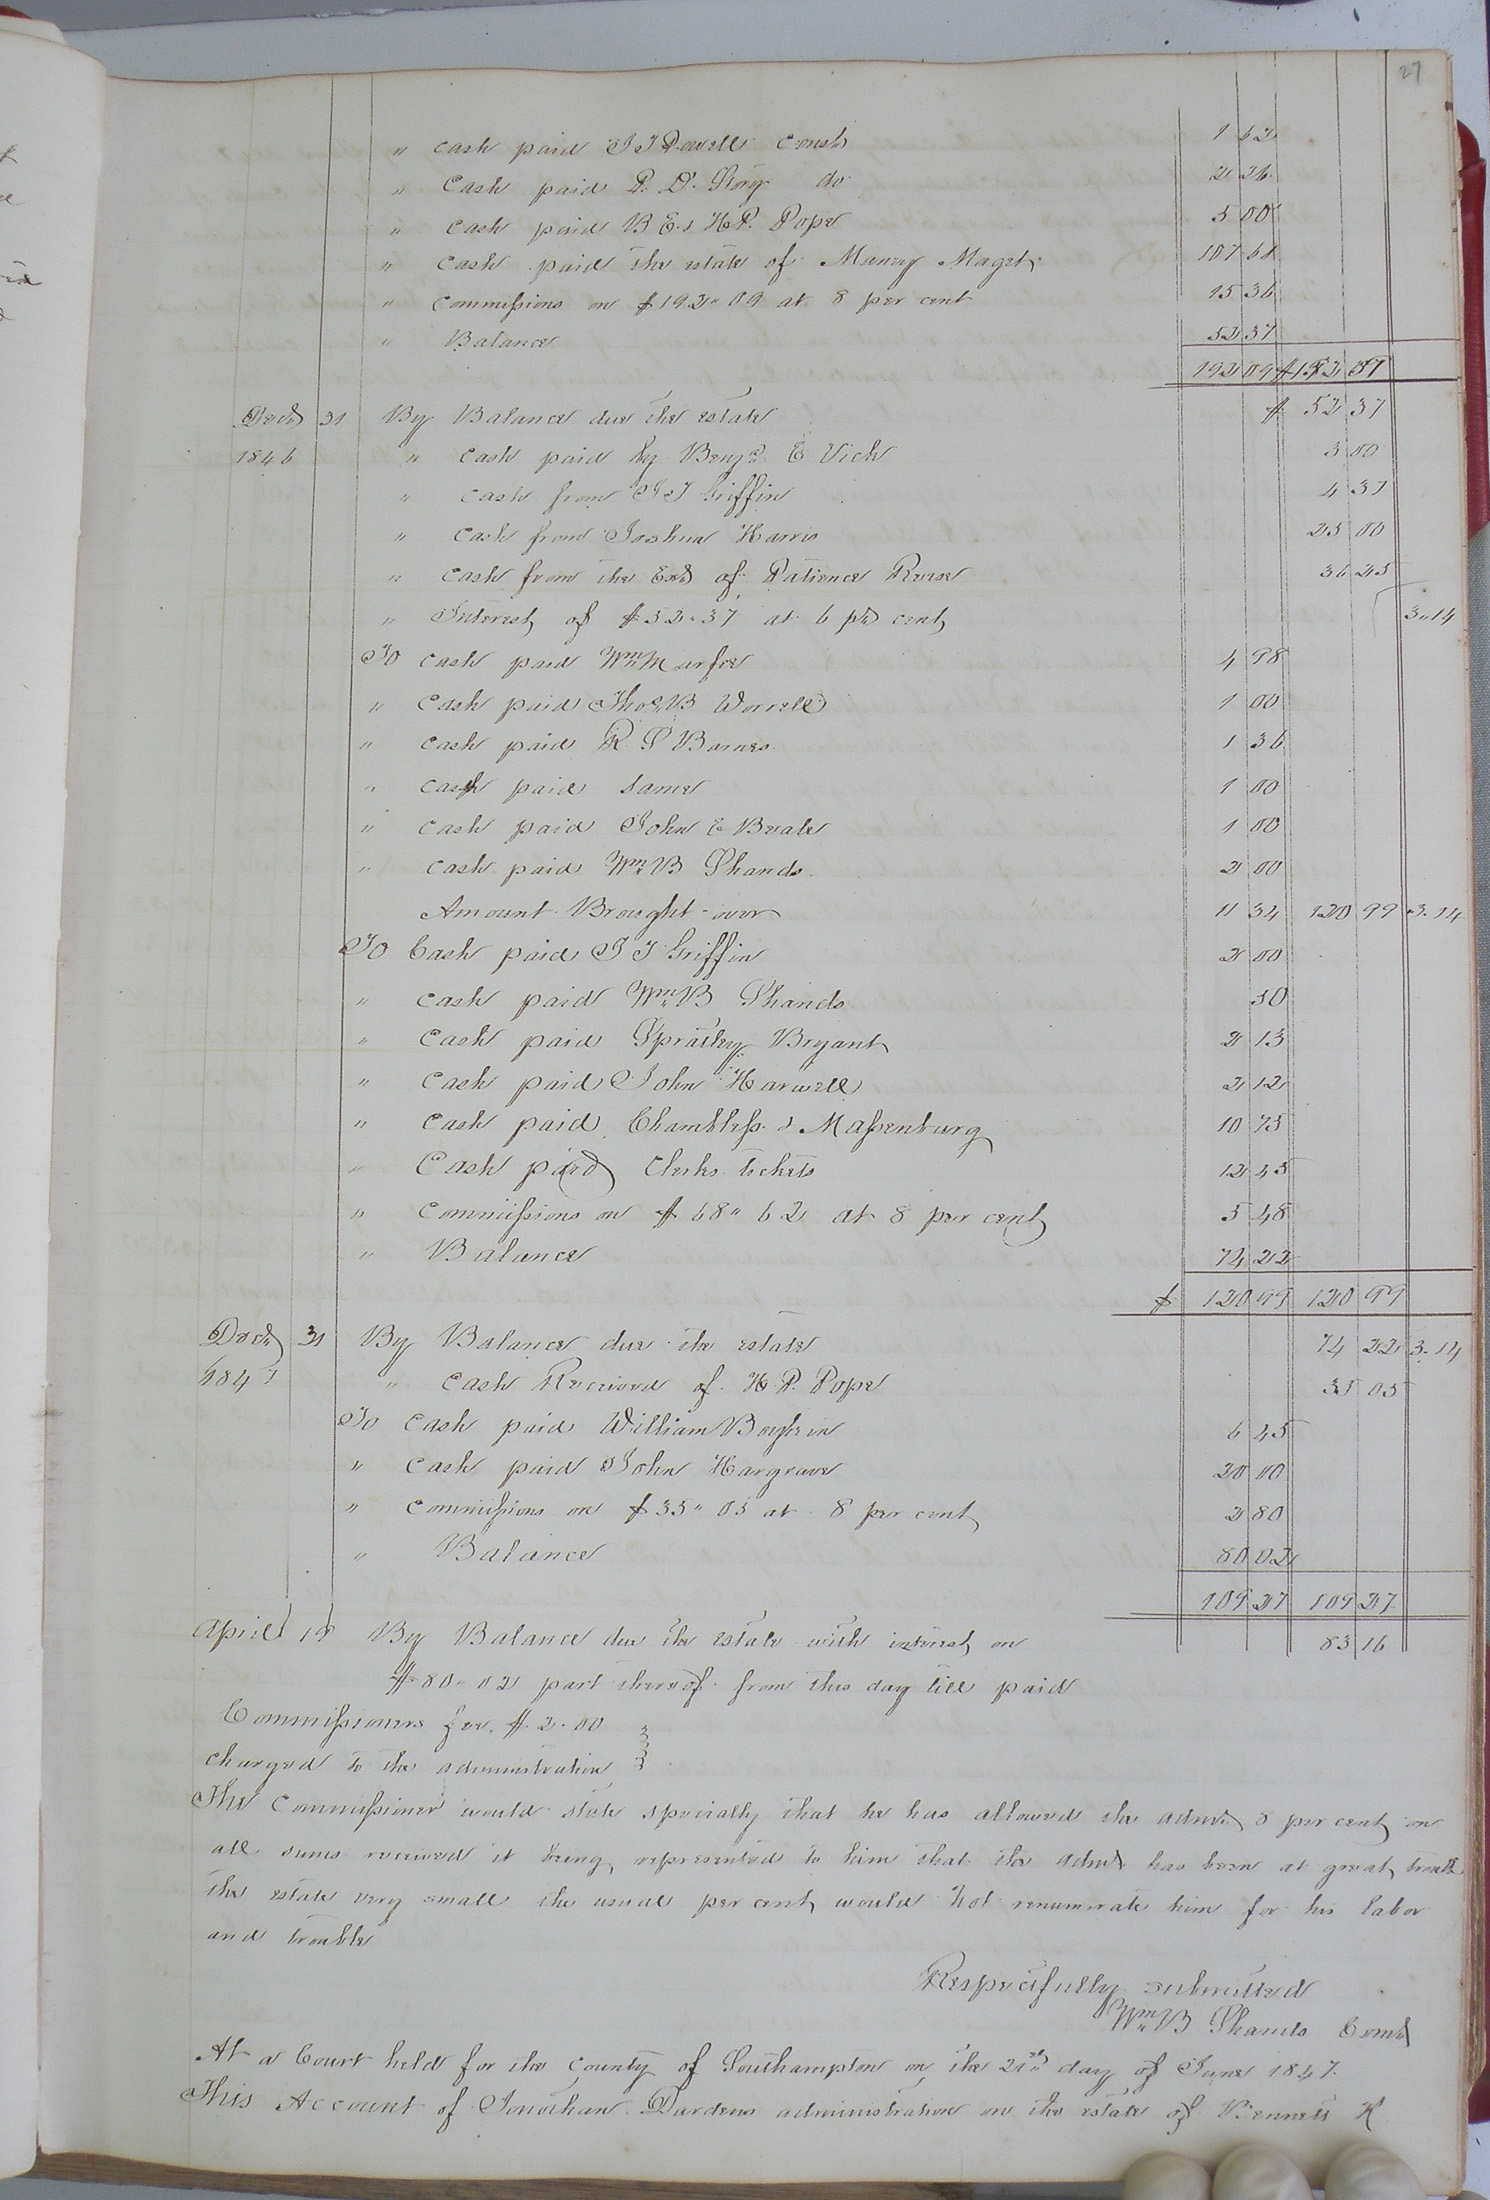 27
" cash paid J J Powell Const 1 62
" Cash paid P. D. Story do 2 26
" cash paid B E & H P. Pope 5 00
" cash paid the estate of Mancy Maget 107 68
" commissions on $192"09 at 8 per cent 15 36
" Balance 52 37
192 09 192 09
Decr 31 By Balance due the estate $ 52 37
1846 " cash paid by Benjn E Vick 3 00
" cash from J J Griffin 4 37
" cash from Joshua Harris 25 00
" cash from the Exr of Patience Reese 36 25
" Interest of $52.37 at 6 pr cent 3"14
To cash paid Wm Murfee 4 98
" cash paid Thos B Worrell 1 00
" cash paid R S Barnes 1 36
" cash paid same 1 00
" cash paid John E Beale 1 00
" cash paid Wm B Shands 2 00
Amount Brought over 11 34 120 99 3.14
To Cash paid J J Griffin 2 00
" cash paid Wm B Shands 50
" cash paid Spratley Bryant 2 13
" cash paid John Harwell 2 12
" cash paid Chambless & Massenburg 10 75
" Cash paid Clerks tickets 12 45
" commissions on $68"62 at 8 per cent 5 48
" Balance 74 22
$ 120 99 120 99
Decr 31 By Balance due the estate 74 22 3.14
1847 " Cash Received of H P. Pope 35 05
To cash paid William 6 45
" cash paid John Hargrave 20 00
" commissions on $35"05 at 8 per cent 2 80
" Balance 80 02
109 27 109 27
April 19 By Balance due the estate with interest on 83 16
$80-02 part thereof from this day till paid
Commissioners fee $2.00
charged to the administration
The commissioner would state specially that he has allowed the admr 8 per cent on
all sums received it being represented to him that the admr has been at great trouble
the estate very small the usual per cent would not renumerate him for his labor
and trouble
Respectfully submitted
Wm B Shands Comr
At a Court held for the county of Southampton on the 21st day of June 1847.
This Account of Jonathan Dardens administration on the estate of Bennett H